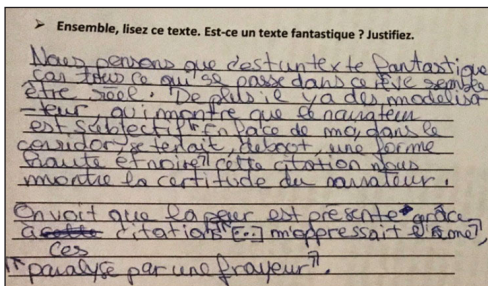 ➤ Ensemble, lisez ce texte. Est-ce un texte fantastique ? Justifiez.
Nous pensons que c'est un texte fantastique
car tous ce qui se passe dans ce rêve semble
être réel. De plus il y a des modélisa
-teur, qui montre que le narrateur
est subjectif "En face de moi, dans le
corridor se tenait, debout, une forme
haute et noire" cette citation nous
montre la certitude du narrateur.
On voit que la peur est présente grâce
à ces citations "[...] m'oppressait l'âme",
"paralysé par une frayeur".